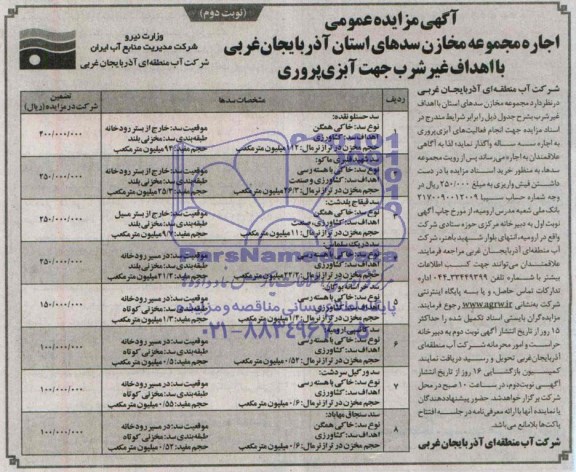 (نوبت دوم)
آگهی مزایده عمومی
اجاره مجموعه مخازن سدهای استان آذربایجان غربی
با اهداف غیر شرب جهت آبزی پروری
وزارت نیرو
شرکت مدیریت منابع آب ایران
شرکت آب منطقه‌ای آذربایجان غربی
شرکت آب منطقه‌ای آذربایجان غربی
در نظر دارد مجموعه مخازن سدهای استان با اهداف
غیر شرب بشرح جدول ذیل را برابر شرایط مندرج در
اسناد مزایده جهت انجام فعالیت‌های آبزی‌پروری
به اجاره سه ساله واگذار نماید؛ لذا به آگاهی
علاقمندان به اجاره می‌رساند پس از رویت مجموعه
سدها، به منظور خرید اسناد مزایده با در دست
داشتن فیش واریزی به مبلغ ۲۵۰/۰۰۰ ریال در
وجه شماره حساب سیبا ۲۱۷۰۰۹۰۰۱۲۰۰۹
بانک ملی شعبه مدرس ارومیه؛ از مورخ چاپ آگهی
نوبت اول به دبیرخانه مرکزی حوزه ستادی شرکت
واقع در ارومیه، انتهای بلوار شهید باهنر، شرکت
آب منطقه‌ای آذربایجان غربی مراجعه فرمایند.
علاقمندان می‌توانند جهت کسب اطلاعات
بیشتر با شماره تلفن ۳۳۴۴۹۳۹۹-۰۴۴ اداره
تدارکات تماس حاصل، و یا به پایگاه اینترنتی
شرکت به نشانی www.agrw.ir رجوع فرمایند.
مزایده‌گران بایستی اسناد تکمیل شده را حداکثر
۱۵ روز از تاریخ انتشار آگهی نوبت دوم به دبیرخانه
حراست و امور محرمانه شرکت آب منطقه‌ای
آذربایجان غربی تحویل و رسید دریافت نمایند.
کمیسیون بازگشایی ۱۶ روز از تاریخ انتشار
آگهی نوبت دوم، در ساعت ۱۰ صبح در محل
شرکت برگزار خواهد شد. حضور پیشنهاددهندگان
یا نماینده آنها با ارائه معرفی‌نامه در جلسه افتتاح
پاکت‌ها بلامانع می‌باشد.
شرکت آب منطقه‌ای آذربایجان غربی
ردیف مشخصات سدها تضمین شرکت در مزایده (ریال)
سد حسنلو نقده:
۱ نوع سد: خاکی همگن موقعیت سد: خارج از بستر رودخانه ۴۰۰/۰۰۰/۰۰۰
اهداف سد: کشاورزی طبقه‌بندی سد: مخزنی بلند
حجم مخزن در تراز نرمال: ۱۱۲ میلیون مترمکعب حجم مفید: ۹۳ میلیون مترمکعب
سد شهید قنبری ماکو:
نوع سد: خاکی با هسته رسی موقعیت سد: خارج از بستر رودخانه ۲۵۰/۰۰۰/۰۰۰
اهداف سد: کشاورزی و صنعت طبقه‌بندی سد: مخزنی بلند
حجم مخزن در تراز نرمال: ۲۶/۳ میلیون مترمکعب حجم مفید: ۲۵/۳ میلیون مترمکعب
سد قیقاج پلدشت:
نوع سد: خاکی همگن موقعیت سد: خارج از بستر مسیل ۲۵۰/۰۰۰/۰۰۰
اهداف سد: کشاورزی، صنعت طبقه‌بندی سد: مخزنی بلند
حجم مخزن در تراز نرمال: ۱۱ میلیون مترمکعب حجم مفید: ۹/۷ میلیون مترمکعب
سد دریک سلماس:
نوع سد: خاکی با هسته رسی موقعیت سد: در مسیر رودخانه ۲۵۰/۰۰۰/۰۰۰
اهداف سد: کشاورزی طبقه‌بندی سد: مخزنی بلند
حجم مخزن در تراز نرمال: ۲۲/۲ میلیون مترمکعب حجم مفید: ۲۱/۲ میلیون مترمکعب
۵ نوع سد: خاکی با هسته رسی موقعیت سد: در مسیر رودخانه ۱۵۰/۰۰۰/۰۰۰
اهداف سد: کشاورزی طبقه‌بندی سد: مخزنی کوتاه
۶ نوع سد: خاکی با هسته رسی موقعیت سد: در مسیر رودخانه ۱۰۰/۰۰۰/۰۰۰
اهداف سد: کشاورزی طبقه‌بندی سد: مخزنی کوتاه
حجم مخزن در تراز نرمال: ۰/۵۲ میلیون مترمکعب حجم مفید: ۰/۵ میلیون مترمکعب
سد ورگیل سردشت:
۷ نوع سد: خاکی با هسته رسی موقعیت سد: در مسیر رودخانه ۱۰۰/۰۰۰/۰۰۰
اهداف سد: کشاورزی طبقه‌بندی سد: مخزنی کوتاه
حجم مخزن در تراز نرمال: ۰/۶ میلیون مترمکعب حجم مفید: ۰/۵۵ میلیون مترمکعب
سد سنجاق مهاباد:
۸ نوع سد: خاکی همگن موقعیت سد: در مسیر رودخانه ۱۰۰/۰۰۰/۰۰۰
اهداف سد: کشاورزی طبقه‌بندی سد: مخزنی کوتاه
حجم مخزن در تراز نرمال: ۰/۶ میلیون مترمکعب حجم مفید: ۰/۵۲ میلیون مترمکعب
ParsNamadData
پایگاه اطلاع رسانی مناقصه و مزایده
۰۲۱-۸۸۳۴۹۶۷۰-۵